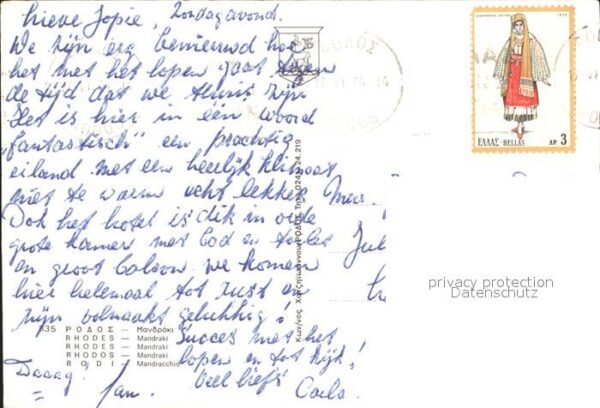 Lieve Jopie, Zondagavond.
We zijn erg benieuwd hoe
het met het lopen gaat tegen
de tijd dat we thuis zijn
Het is hier in één woord
"fantastisch" een prachtig
eiland met een heerlijk klimaat
niet te warm echt lekker
Ook het hotel is dik in orde
grote kamer met bad en toilet
en groot balcon. We komen
hier helemaal tot rust en
zijn volmaakt gelukkig!
Succes met het
lopen en tot kijk!
Daaag! Jan. Veel liefs
Carla.
Mevr.
ΡΟΔΟΣ
ΕΛΛΑΣ-HELLAS ΔΡ 3
privacy protection
Datenschutz
535 ΡΟΔΟΣ — Μανδράκι
RHODES — Mandraki
RHODES — Mandraki
RHODOS — Mandraki
RODI — Mandracchio